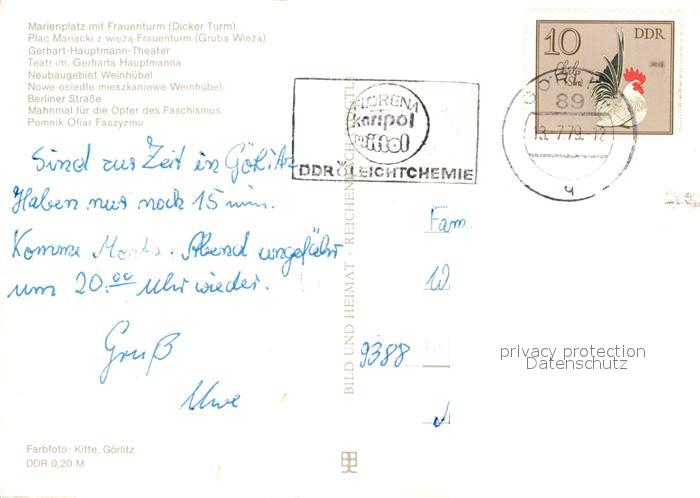 Marienplatz mit Frauenturm (Dicker Turm)
Plac Mariacki z wieżą Frauenturm (Gruba Wieża)
Gerhart-Hauptmann-Theater
Teatr im. Gerharta Hauptmanna
Neubaugebiet Weinhübel
Nowe osiedle mieszkaniowe Weinhübel
Berliner Straße
Mahnmal für die Opfer des Faschismus
Pomnik Ofiar Faszyzmu
Sind zur Zeit in Görlitz
Haben nur noch 15 min.
Komme Abend ungefähr
um 20.00 Uhr wieder.
Gruß
Uwe
Farbfoto: Kitte, Görlitz
DDR 0,20 M
BILD UND HEIMAT · REICHENBACH
FLORENA
karipol
wittol
DDR LEICHTCHEMIE
10
DDR
89
13.-7.79.-12
u
Fam.
W
9388
privacy protection
Datenschutz